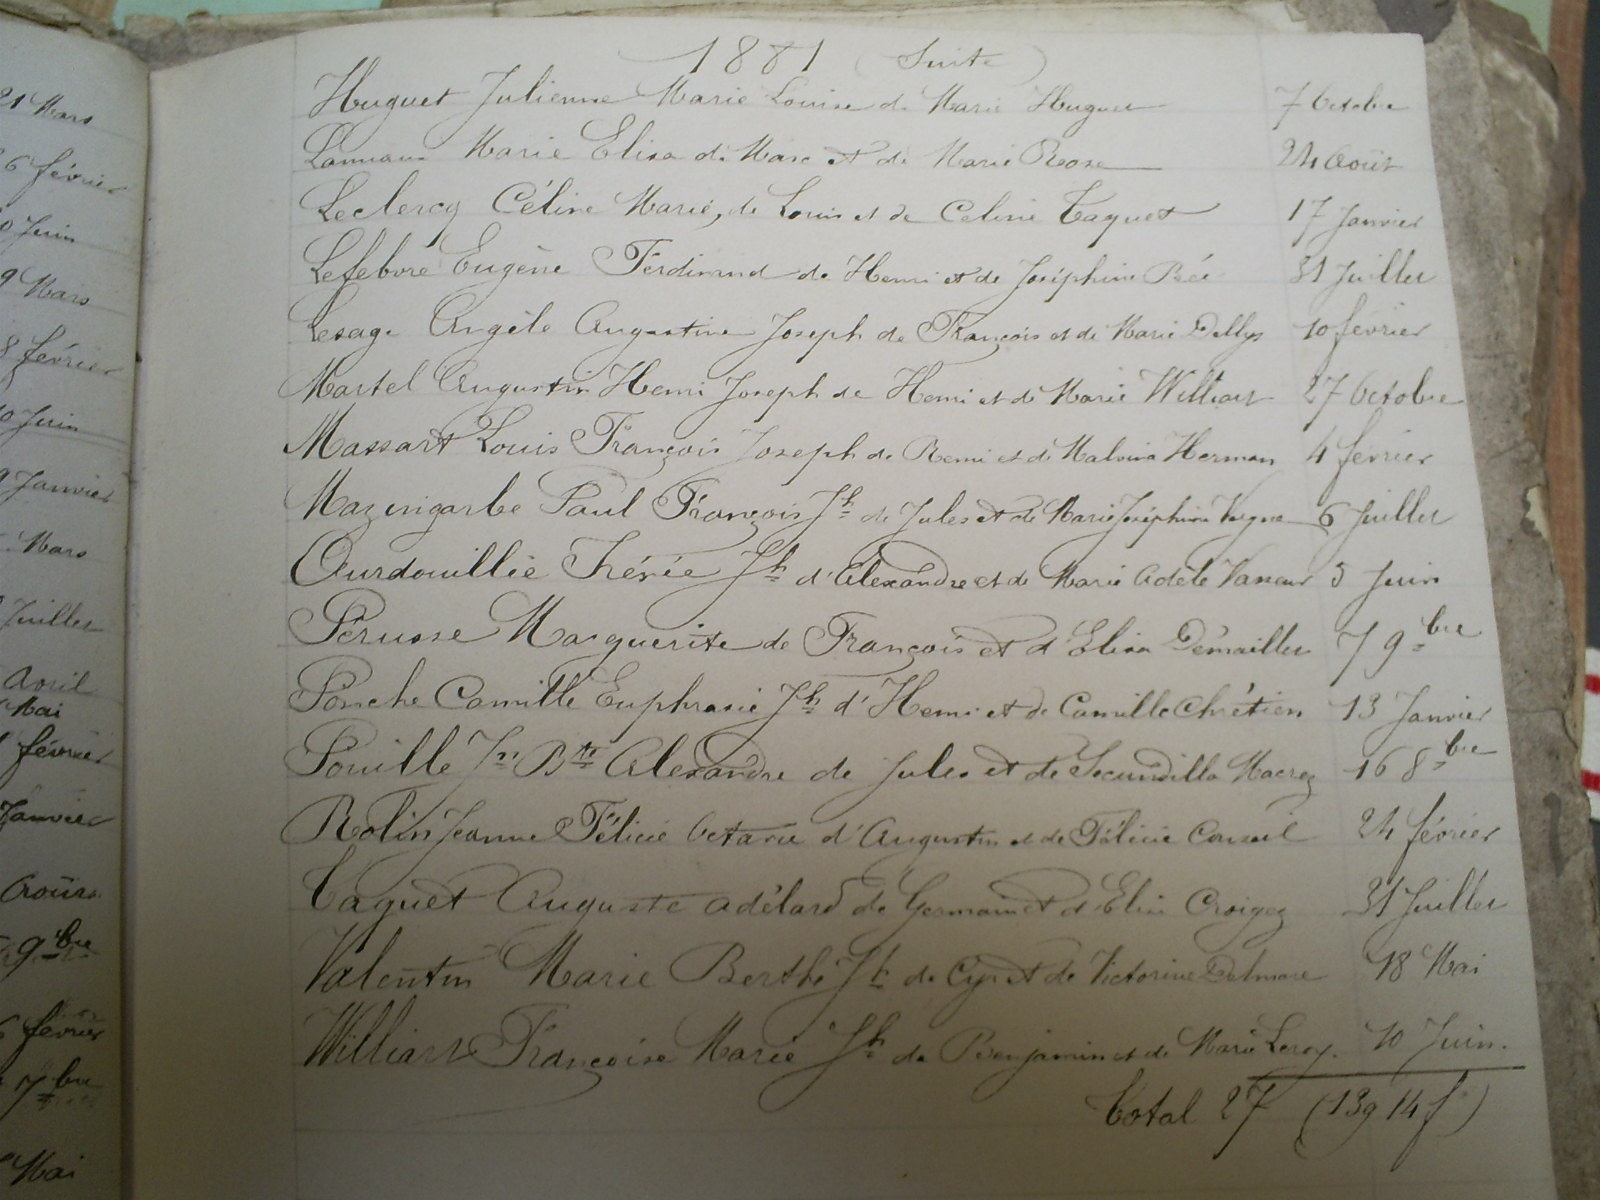 1881 (Suite)
Huguet Julienne Marie Louise de Marie Huguet 7 Octobre
Lannaux Marie Elisa de Marc et de Marie Rose 24 Août
Leclercq Céline Marie, de Louis et de Céline Taquet 17 Janvier
Lefebvre Eugène Ferdinand de Henri et de Joséphine Bée 31 Juillet
Lesage Angèle Augustine Joseph de François et de Marie Dellys 10 février
Martel Augustin Henri Joseph de Henri et de Marie Williart 27 Octobre
Massart Louis François Joseph de Remi et de Malvina Herman 4 février
Mazingarbe Paul François Jh de Jules et de Marie Joséphine 6 Juillet
Ourdouillié Irénée Jh d'Alexandre et de Marie Adèle Vaneur 5 Juin
Pérusse Marguerite de François et d'Elisa Démailler 7 9bre
Ponche Camille Euphrasie Jh d'Henri et de Camille Chrétien 13 Janvier
Pouille Jn Bte Alexandre de Jules et de Secundilla Macrez 16 8bre
Rolin Jeanne Félicie Octavie d'Augustin et de Félicie Conseil 24 février
Taquet Auguste Adélard de Germain et d'Elisa Croigez 31 Juillet
Valentin Marie Berthe Jh de Cyr et de Victorine Delmare 18 Mai
Williart Françoise Marie Jh de Benjamin et de Marie Leroy. 10 Juin.
Total 27 (13g 14f)
21 Mars
6 février
Juin
9 Mars
8 février
10 Juin
9 Janvier
Mars
Juillet
Avril
Mai
février
Janvier
Août
9bre
6 février
7bre
Mai